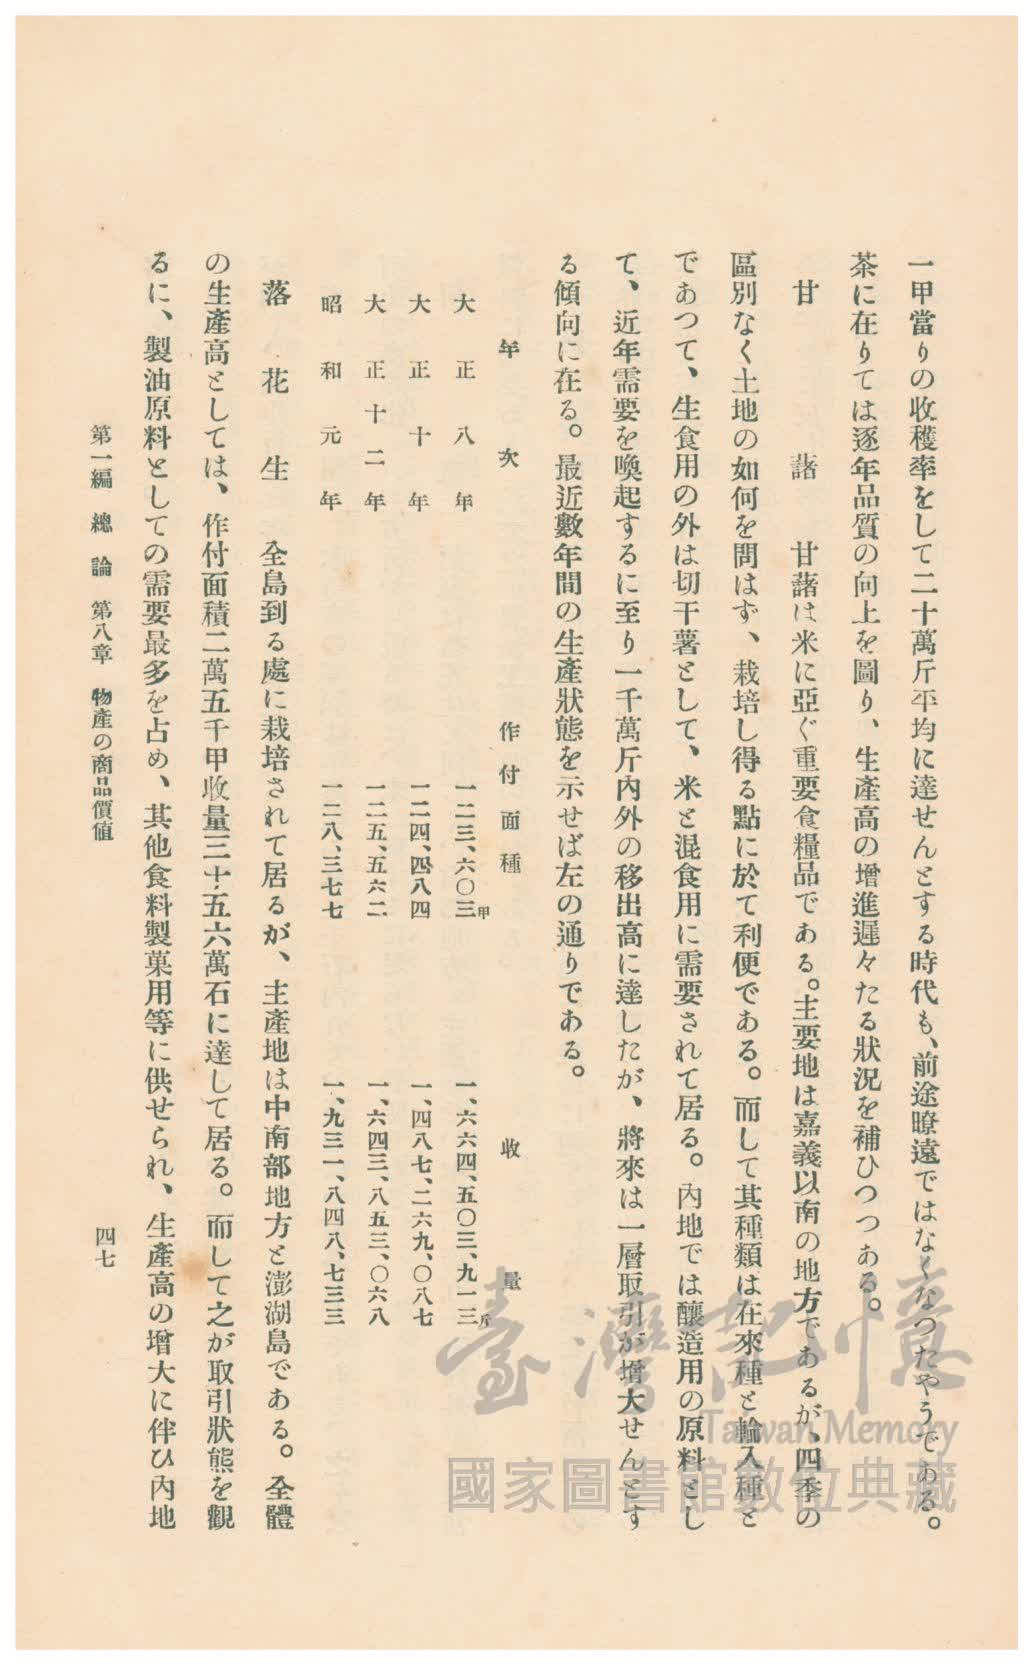 一甲當りの收穫率をして二十萬斤平均に達せんとする時代も、前途暸遠ではなくなつたやうである。
茶に在りては逐年品質の向上を圖り、生產高の增進遲々たる狀況を補ひつつある。
甘藷　甘藷は米に亞ぐ重要食糧品である。主要地は嘉義以南の地方であるが、四季の
區別なく土地の如何を問はず、栽培し得る點に於て利便である。而して其種類は在來種と輸入種と
であつて、生食用の外は切干薯として、米と混食用に需要されて居る。內地では釀造用の原料とし
て、近年需要を喚起するに至り一千萬斤內外の移出高に達したが、將來は一層取引が增大せんとす
る傾向に在る。最近數年間の生產狀態を示せば左の通りである。
年次　作付面種　收量
大正八年　一二三、六〇三甲　一、六六四、五〇三、九一三斤
大正十年　一二四、四八四　一、四八七、二六九、〇八七
大正十二年　一二五、五六二　一、六四三、八五三、〇六八
昭和元年　一二八、三七七　一、九三一、八四八、七三三
落花生　全島到る處に栽培されて居るが、主產地は中南部地方と澎湖島である。全體
の生產高としては、作付面積二萬五千甲收量三十五六萬石に達して居る。而して之が取引狀態を觀
るに、製油原料としての需要最多を占め、其他食料製菓用等に供せられ、生產高の增大に伴ひ內地
第一編　總論　第八章　物產の商品價値　四七
臺灣記憶
Taiwan Memory
國家圖書館數位典藏